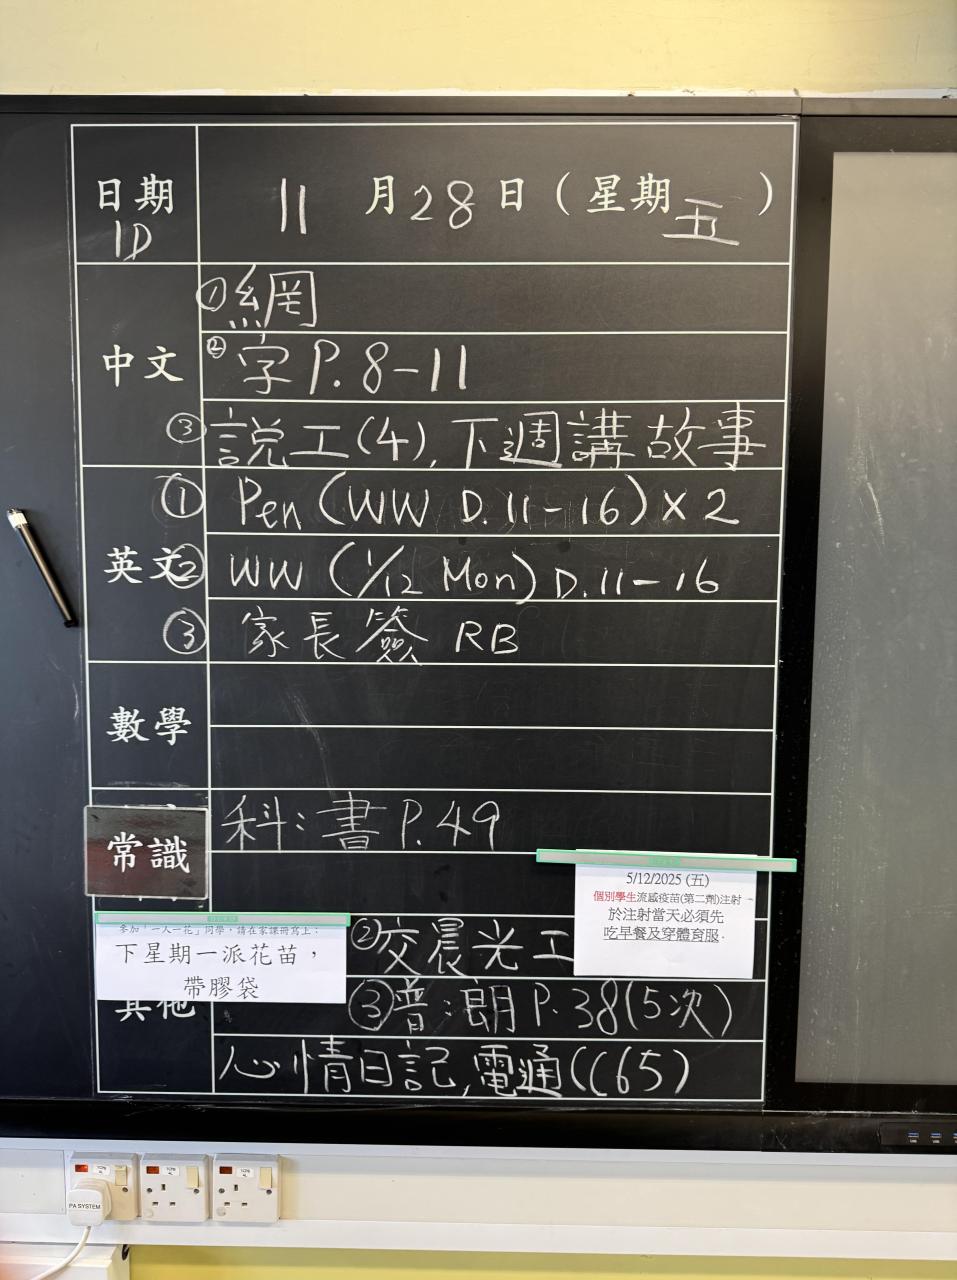 日期 11 月 28 日 ( 星期 五 )
1D
中文
① 網
② 字 P. 8-11
③ 説工(4), 下週講故事
英文
① Pen (WW D. 11-16) x 2
② WW (1/12 Mon) D. 11-16
③ 家長簽 RB
數學
常識
科: 書 P. 49
5/12/2025 (五)
個別學生流感疫苗(第二劑)注射
於注射當天必須先
吃早餐及穿體育服.
參加「一人一花」同學，請在家課冊寫上：
下星期一派花苗，
帶膠袋
其他
② 交晨光工
③ 普: 朗 P. 38 (5次)
心情日記, 電通 (C65)
PA SYSTEM